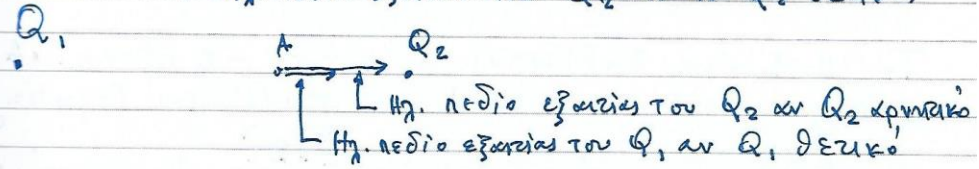 Q₁
A Q₂
Ηλ. πεδίο εξαιτίας του Q₂ αν Q₂ αρνητικό
Ηλ. πεδίο εξαιτίας του Q₁ αν Q₁ θετικό